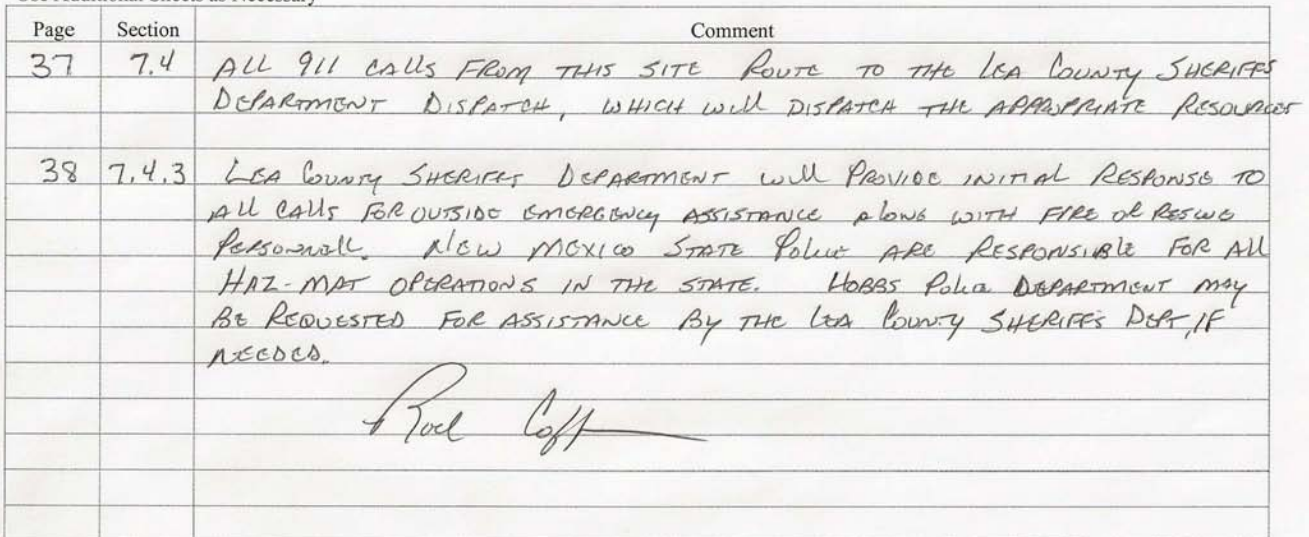 Page Section Comment
37 7.4 ALL 911 CALLS FROM THIS SITE ROUTE TO THE LEA COUNTY SHERIFFS
DEPARTMENT DISPATCH, WHICH WILL DISPATCH THE APPROPRIATE RESOURCES
38 7.4.3 LEA COUNTY SHERIFFS DEPARTMENT WILL PROVIDE INITIAL RESPONSE TO
ALL CALLS FOR OUTSIDE EMERGENCY ASSISTANCE ALONG WITH FIRE OR RESCUE
PERSONNELL. NEW MEXICO STATE POLICE ARE RESPONSIBLE FOR ALL
HAZ-MAT OPERATIONS IN THE STATE. HOBBS POLICE DEPARTMENT MAY
BE REQUESTED FOR ASSISTANCE BY THE LEA COUNTY SHERIFFS DEPT, IF
NEEDED.